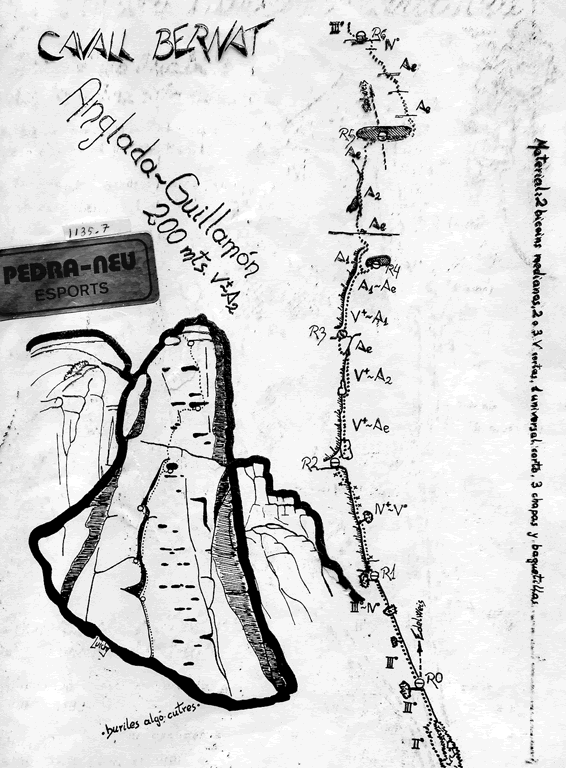 CAVALL BERNAT
Anglada~Guillamón
200 mts V+A2
1135.7
PEDRA-NEU
ESPORTS
III° R6
IV°
Ae
Ae
R5
Ae
A2
Ae
A1
R4
A1~Ae
V+~A1
R3
Ae
V+~A2
V+~Ae
R2
IV+~V°
R1
III~IV°
Edelweis
II°
R0
III°
II°
Material: 2 bicoins medianas, 2 o 3 V cortas, 1 universal corto, 3 chapas y baguetillas
·buriles algo cutres·